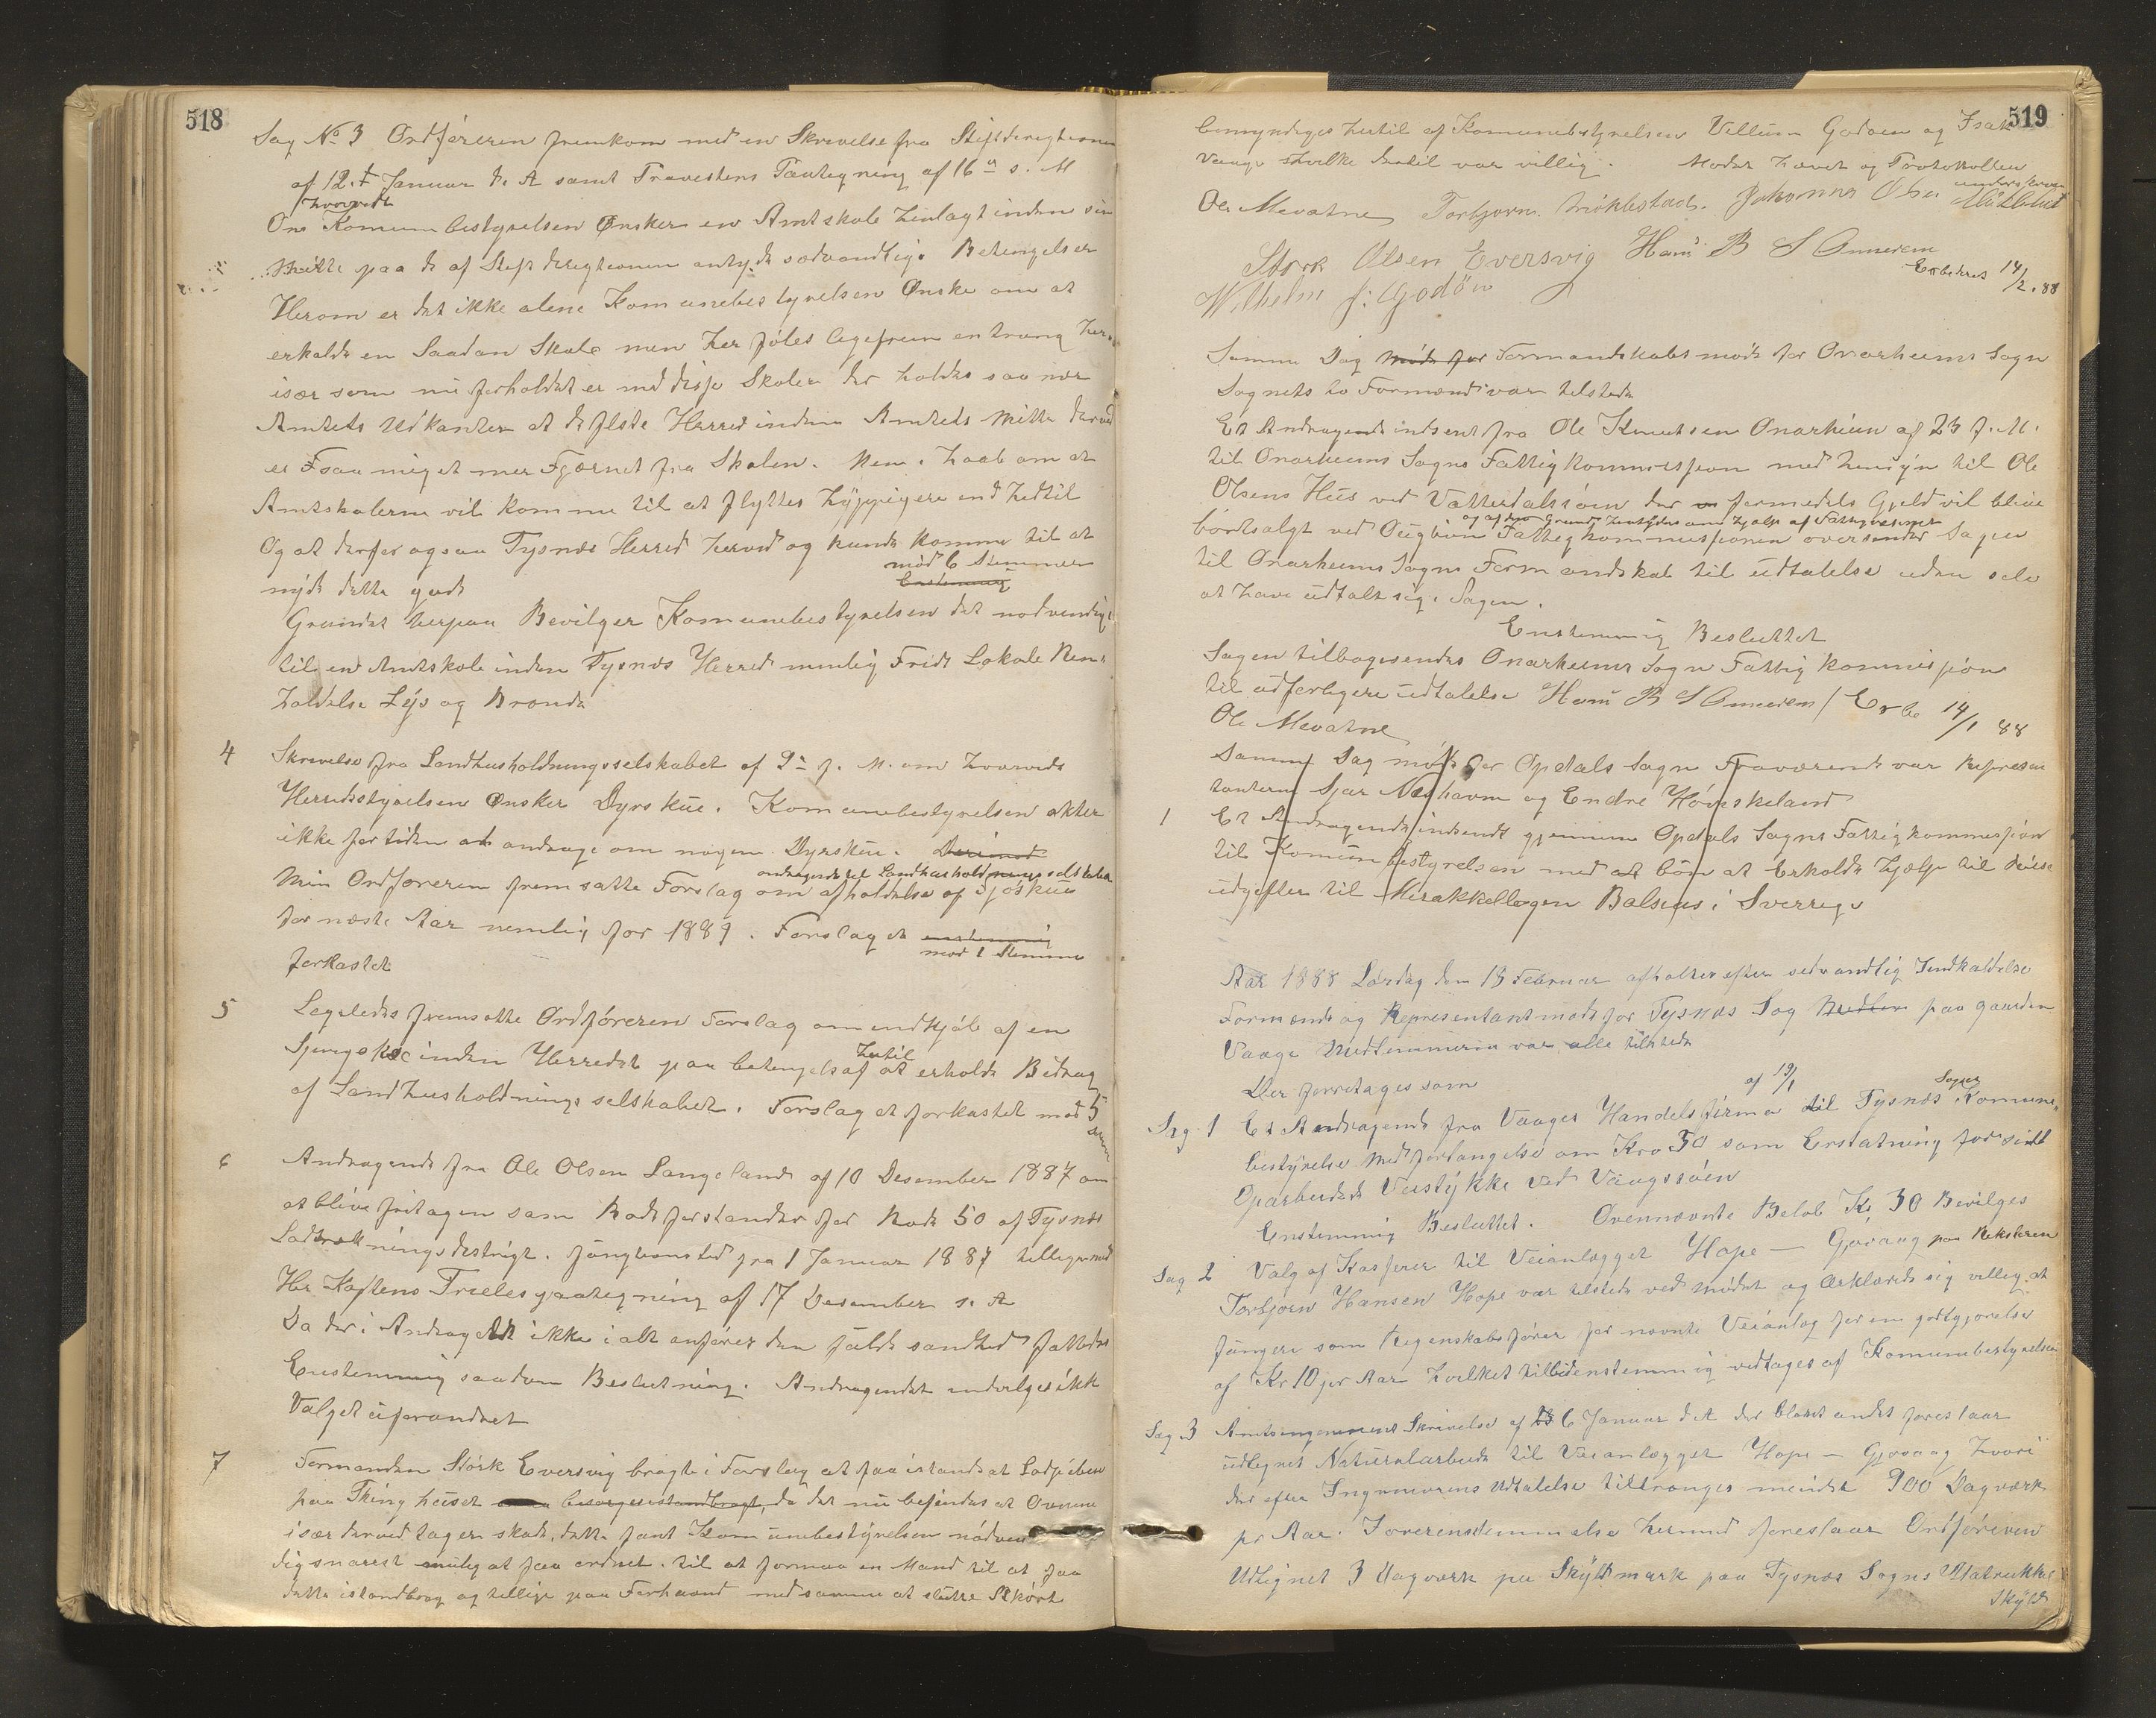 518
Sag No 3 Ordføreren fremkom med en Skrivelse fra Stiftdiregtionen
af 12.t Januar d. A samt Provestens Paategning af 16de s. M
hvorvidt
Om Komunebestyrelsen Ønsker en Amtskole henlagt inden sin
Midte paa de af Stiftdiregtionen antyde sædvandlige Betengelser
Herom er det ikke alene Komunebestyrelsen Ønske om at
erholde en Saadan Skole men her føles ligefrem en trang her
især som nu forholdet er med disse Skoler der holdes saa nær
Amtets Udkanter at de fleste Herred inden Amtets Mitte derved
er saa meget mer Fjærnet fra Skolen. Men i haab om at
Amtskolerne vil komme til at flyttes hyppigere end hedtil
Og at derfor ogsaa Tysnæs Herred herved og kunde komme til at
mod 6 Stemmer
nyde dette gode Enstemmig
Grundet herpaa Bevilger Komunebestyrelsen det nødvendige
til en Amtskole inden Tysnæs Herred nemlig Fridt Lokale Ren-
holdelse Lys og Brænde
4 Skrivelse fra Landhusholdningsselskabet af 9de f. M. om hvorvidt
Herredsstyrelsen Ønsker Dyrskue. Komunebestyrelsen akter
ikke for tiden at andrage om nogen Dyrskue. Derimod
andragende til Landhusholdningsselskabet
Min Ordføreren fremsatte Forslag om afholdelse af
for næste Aar nemlig for 1889. Forslaget enstemmig
mod 1 Stemme
forkastet
5 Legeledes fremsatte Ordføreren Forslag om indkjøb af en
hertil
inden Herredet paa betengelse af at erholde Bidrag
af Landhusholdningsselskabet. Forslaget forkastet mod 5
6 Andragende fra Ole Olsen Langeland af 10 Desember 1887 om
at blive fritagen som Rodeforstander for Rode 50 af Tysnæs
Ladtrækningsdestrigt. fungtionstid fra 1 Januar 1887 tilligemed
Her Kaptens paategning af 17 Desember s. A
Da der i Andraget ikke i alt anfører den fulde sandhed fattedes
Enstemmig saadan Beslutning. Andragendet indvilges ikke
Valget uforandret
7 Formanden Størk Eversvig bragte i Forslag at faa istandsat
paa Thinghuset besørges istandbragt, da det nu befindes at Ovnene
især derved tager skade, dette fant Komunebestyrelsen nødven
dig snarest mulig at faa ordnet. til at formaa en Mand til at faa
dette istandbrag og tillige paa Forhaand med samme at slutte Akkort
519
bemyndiges hertil af Komunebestyrelsen Villum Godøen og Isak
Vaage hvilke dertil var villig. Møder hævet og Protokollen
underskreven
Ole Mevatne Torbjørn Mykkestad. Johannes Olsen
Størk Olsen Eversvig Hans B S Onnereim
Wilhelm J: Godöen
Exbederet 14/2.88
Samme Dag møde for Formandskabsmøde for Onarheims Sogn
Sognets to Formænd var tilstede
Et Andragende indsent fra Ole Knutsen Onarheim af 23 f. M.
til Onarheims Sogns Fattigkommission med hensyn til Ole
Olsens Hus ved Vatterdalssøen der formedels Gjeld vil blive
og af den Grund hentydes om hjælp af Fattigvesenet
bortsalgt ved Augtion Fattigkommissionen oversender Sagen
til Onarheims Sogns Formandskab til udtalelse uden selv
at have udtalt sig i Sagen.
Enstemmig Besluttet
Sagen tilbagesendes Onarheims Sogn Fattigkommission
til udførligere udtalelse Hans B S Onnereim / Exbe 14/1 88
Ole Mevatne
Samme Dag møde for Opdals Sogn Fraværende var Repræsen
tanterne Sjur Neshavn og Endre Høviskeland
1 Et Andragende indsendt gjennem Opdals Sogns Fattigkommission
til Komunebestyrelsen med at bøn at Erholde hjælp til
udgifter til Mirakkellægen Balseus i Sverrige
Aar 1888 Lørdag den 18 Februar afholtes efter sedvandlig Indkaldelse
Formends og Representantmøde for Tysnæs Sog Medlem paa gaarden
Vaage Medlemmerne var alle tilstede
Der foretages som
af 19/1 Sogns
Sag 1 Et Andragende fra Vaages Handelsfirma til Tysnæs Komune-
bestyrelse med forlangelse om Kro 50 som Erstatning for sidt
Oparbeidede Veistykke ved Vaagssøen
Enstemmig Besluttet. Ovennævnte Beløb Kr 30 Bevilges
Sag 2 Valg af Kasserer til Veianlægget Hope - Gjøvaag paa Reksteren
Torbjørn Hansen Hope var tilstede ved mødet og Ærklærede sig villig at
fungere som Regenskabsfører for nævnte Veianlæg for en godtgjørelse
af Kr 10 per Aar hvilket tilbud enstemmig vedtages af Komunebestyrelsen
Sag 3 Amtsingeniørens Skrivelse af 6 Januar d. A der blandt andet foreslaar
udlignet Naturalarbeide til Veianlægget Hope - Gjøvaag hvori
der efter Ingeniørens Udtalelse tiltrænges mindst 900 Dagværk
pr Aar. I overenstemmelse hermed foreslaar Ordføreren
Udlignet 3 Dagværk pr Skyldmark paa Tysnæs Sogns Matrikkel
Skyld